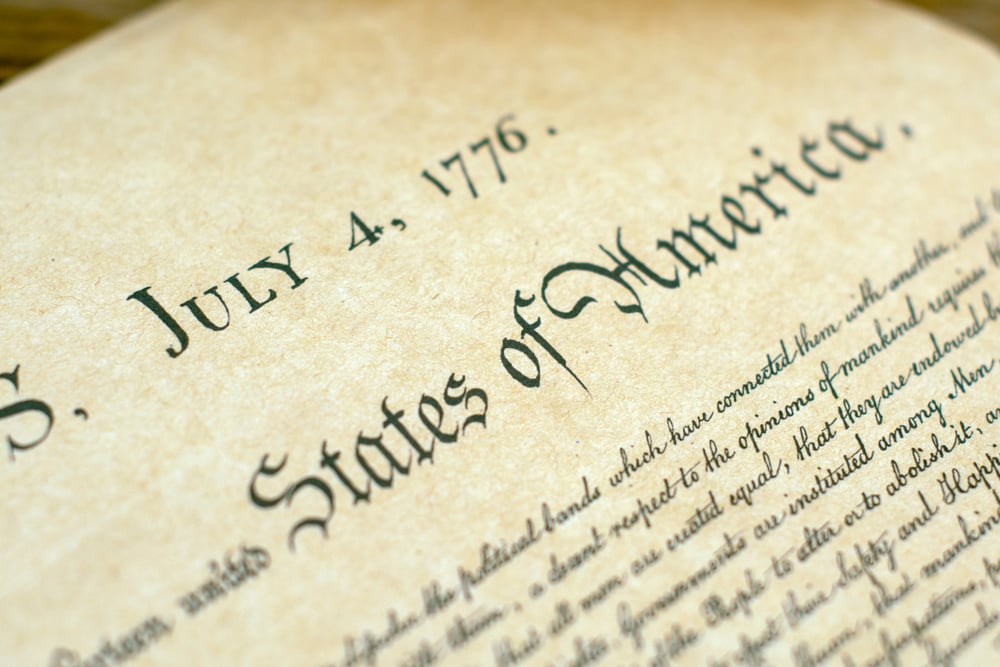 S, JULY 4, 1776.
thirteen united States of America,
the political bands which have connected them with another, and
with them, a decent respect to the opinions of mankind requires
that all men are created equal, that they are endowed by
Governments are instituted among Men,
of the People to alter or to abolish it, and
effect their Safety and Happi
shewn, that mankind